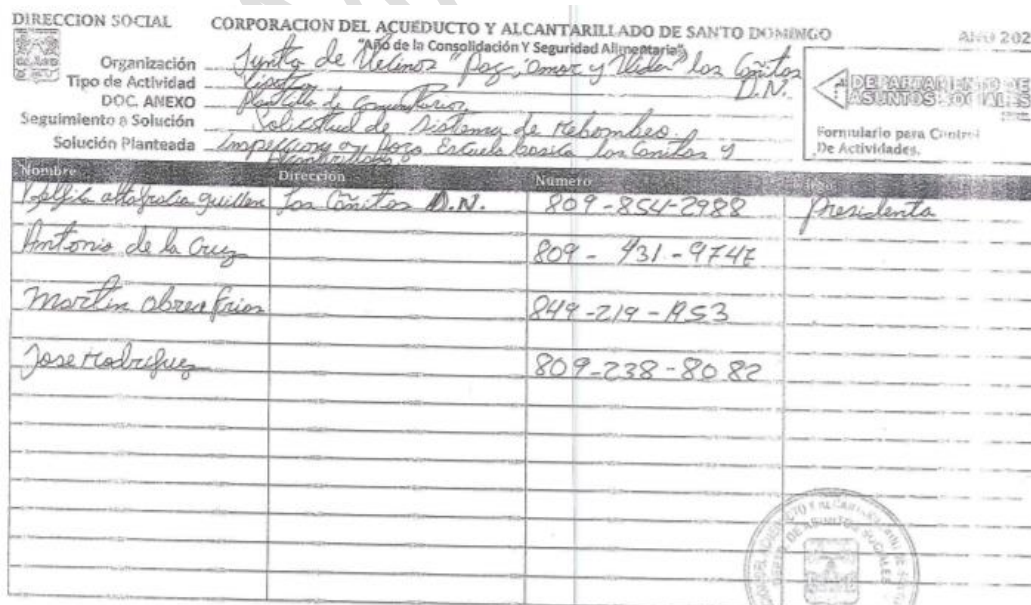 DIRECCION SOCIAL
CORPORACION DEL ACUEDUCTO Y ALCANTARILLADO DE SANTO DOMINGO
AÑO 202
"Año de la Consolidación Y Seguridad Alimentaria"
Organización Junta de Vecinos "Paz, amor y Vida" los Cañitos D.N.
Tipo de Actividad
DOC. ANEXO Plantilla de Comunitarios
Seguimiento a Solución Solicitud de Sistema de Rebombeo.
Solución Planteada Escuela los Cañitos y
DEPARTAMENTO DE
ASUNTOS SOCIALES
Formulario para Control
De Actividades.
Nombre Dirección Número
guillen Los Cañitos D.N. 809-854-2988 Presidenta
Antonio de la Cruz 809-
Martin abreu frias 849-219-
Jose Rodriguez 809-238-8082